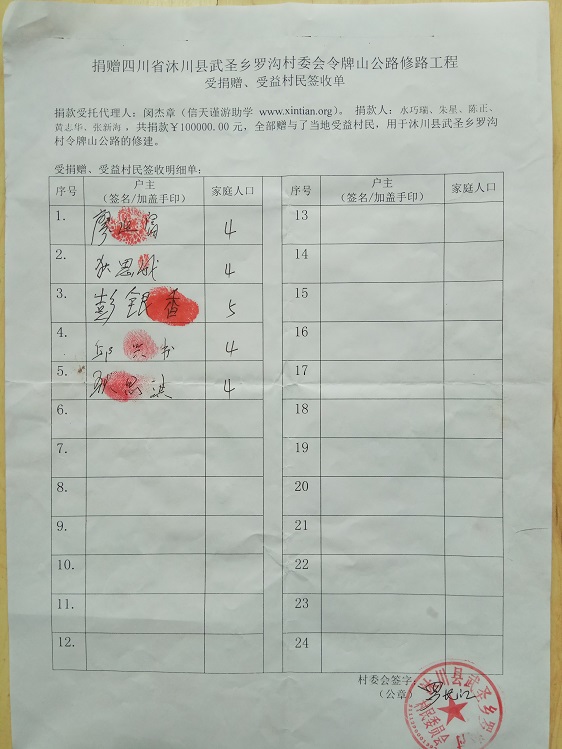 捐赠四川省沐川县武圣乡罗沟村委会令牌山公路修路工程
受捐赠、受益村民签收单
捐款受托代理人：闵杰章（信天谨游助学 www.xintian.org）。 捐款人：水巧瑞、朱星、陈正、
黄志华、张新海 ，共捐款￥100000.00 元，全部赠与了当地受益村民，用于沐川县武圣乡罗沟
村令牌山公路的修建。
受捐赠、受益村民签收明细单：
序号 户主（签名/加盖手印） 家庭人口 序号 户主（签名/加盖手印） 家庭人口
1. 廖 4 13
2. 狄思 4 14
3. 彭银香 5 15
4. 邱兴书 4 16
5. 狄思 4 17
6. 18
7. 19
8. 20
9. 21
10. 22
11. 23
12. 24
村委会签字：
（公章）
沐川县武圣乡罗 村民委员会